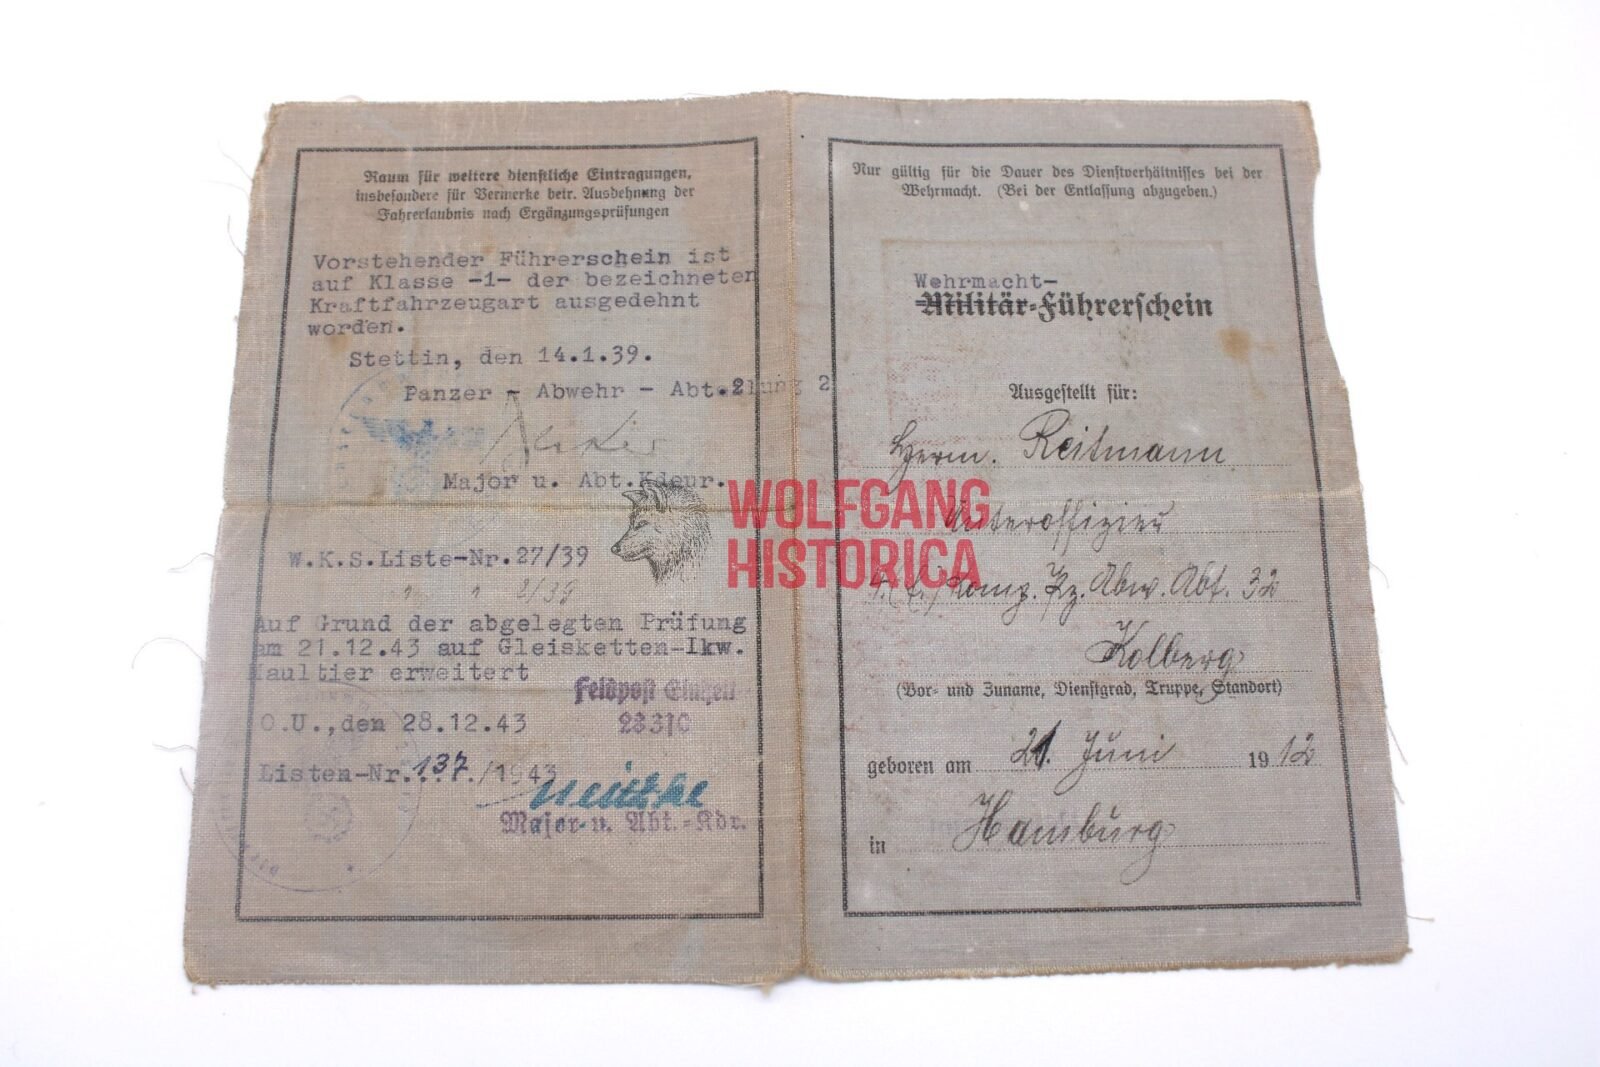 Raum für weitere dienstliche Eintragungen,
insbesondere für Vermerke betr. Ausdehnung der
Fahrerlaubnis nach Ergänzungsprüfungen
Vorstehender Führerschein ist
auf Klasse -1- der bezeichneten
Kraftfahrzeugart ausgedehnt
worden.
Stettin, den 14.1.39.
Panzer - Abwehr - Abteilung 2
Major u. Abt.Kdeur.
W.K.S.Liste-Nr.27/39
" " 2/39
Auf Grund der abgelegten Prüfung
am 21.12.43 auf Gleisketten-Lkw.
Maultier erweitert
Feldpost Einheit
28310
O.U.,den 28.12.43
Listen-Nr.137./1943
Major u. Abt.-Kdr.
Nur gültig für die Dauer des Dienstverhältnisses bei der
Wehrmacht. (Bei der Entlassung abzugeben.)
Wehrmacht-
Militär-Führerschein
Ausgestellt für:
Herm. Reitmann
Unteroffizier
4.(E.) Komp. Pz. Abw. Abt. 32
Kolberg
(Vor- und Zuname, Dienstgrad, Truppe, Standort)
geboren am 21. Juni 1912
in Hamburg
WOLFGANG
HISTORICA